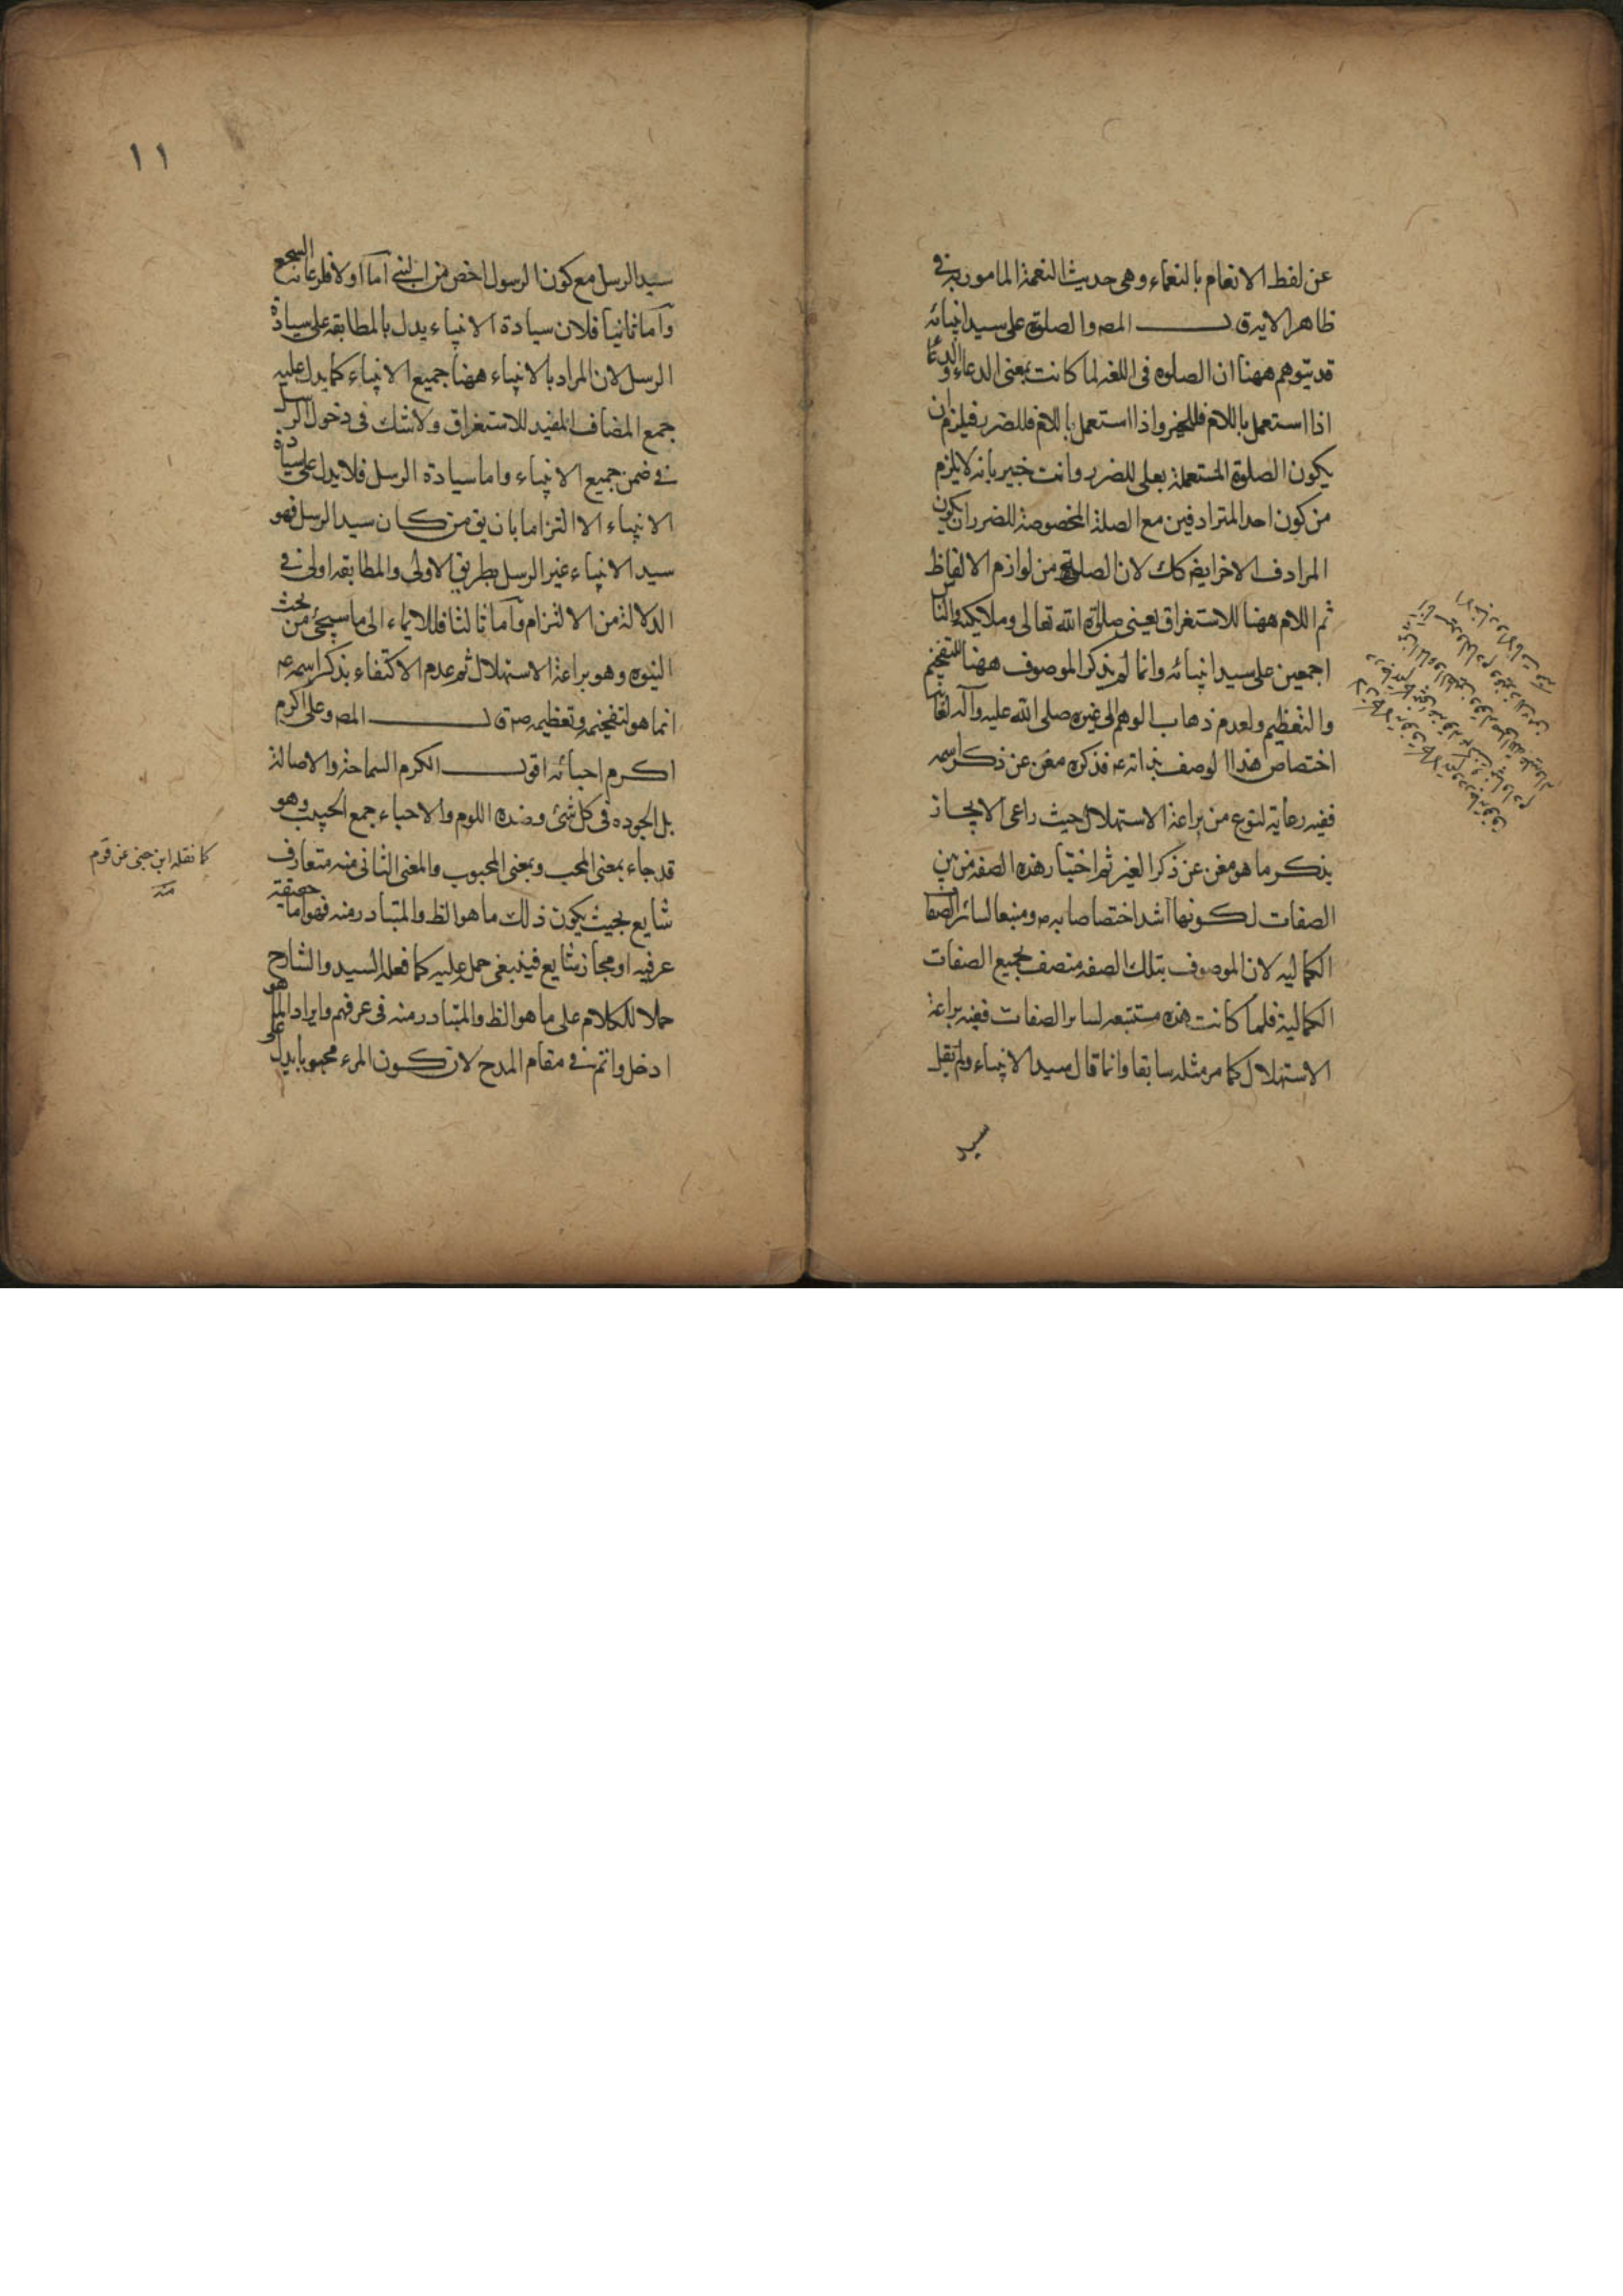 عن لفظ الانعام بالنعماء وهى حديث النعمة المامور به فى
ظاهر الاية قـــــــــال المصـ والصلوة على سيد انبيائه
قد يتوهم ههنا ان الصلوه فى اللغه لما كانت بمعنى الدعاء والدعا
اذا استعمل باللام فللخير واذا استعمل فللضرر فيلزم ان
يكون الصلوة المستعملة بعلى للضرر وانت خبير بانه لايلزم
من كون احد المترادفين مع الصلة المخصوصة للضرر ان يكون
المرادف الاخر ايضـ كك لان الصلوح من لوازم الالفاظ
ثم اللام ههنا للاستغراق يعنى صلوة الله تعالى وملايكته والناس
اجمعين على سيد انبيائه وانما لم يذكر الموصوف ههنا للتفخيم
والتعظيم ولعدم ذهاب الوهم الى غيره صلى الله عليه وآله لغاية
اختصاص هذا الوصف بذاته عـ فذكره مغن عن ذكر اسمه
ففيه رعاية لنوع من براعة الاستهلال حيث راعى الايجاز
بذكر ما هو مغن عن ذكر الغير ثم اختيار هذه الصفه من بين
الصفات لكونها اشد اختصاصا به صـ ومنبعا لسائر الصفات
الكماليه لان الموصوف بتلك الصفه متصف بجميع الصفات
الكمالية فلما كانت هذه مستتبعه لساير الصفات ففيه براعة
الاستهلال كما مر مثله سابقا وانما قال سيد الانبياء ولم يقل
سيد
١١
سيد الرسل مع كون الرسول اخص من النبى اما اولا فلرعاية السجع
وآما ثانيا فلان سيادة الانبياء يدل بالمطابقه على سيادة
الرسل لان المراد بالانبياء ههنا جميع الانبياء كما يدل عليه
جمع المضاف المفيد للاستغراق ولاشك فى دخول الرسل
فى ضمن جميع الانبياء واما سيادة الرسل فلايدل على سيادة
الانبياء الا التزاما بان يق من كان سيد الرسل فهو
سيد الانبياء غير الرسل بطريق الاولى والمطابقه اولى فى
الدلالة من الالتزام وآما ثالثا فللايماء الى ما سيجئ من بحث
النبوه وهو براعة الاستهلال ثم عدم الاكتفاء بذكر اسمه عـ
انما هو لتفخيمه وتعظيمه صـ قـــــــــال المصـ وعلى اكرم
اكرم احبائه اقول الكرم السماحة والاصالة
بل الجوده فى كل شئ وضده اللوم والاحباء جمع الحبيب وهو
قد جاء بمعنى المحب وبمعنى المحبوب والمعنى الثانى منه متعارف
شايع بحيث يكون ذلك ما هو الظ والمتبادر منه فهو اما حقيقة
عرفيه او مجاز شايع فينبغى حمل عليه كما فعله السيد والشارح
حملا للكلام على ما هو الظ والمتبادر منه فى عرفهم وايراد الما هو
ادخل واتم فى مقام المدح لان كون المرء محبوبا يدل على
كما نقله ابن جنى عن قوم
منه